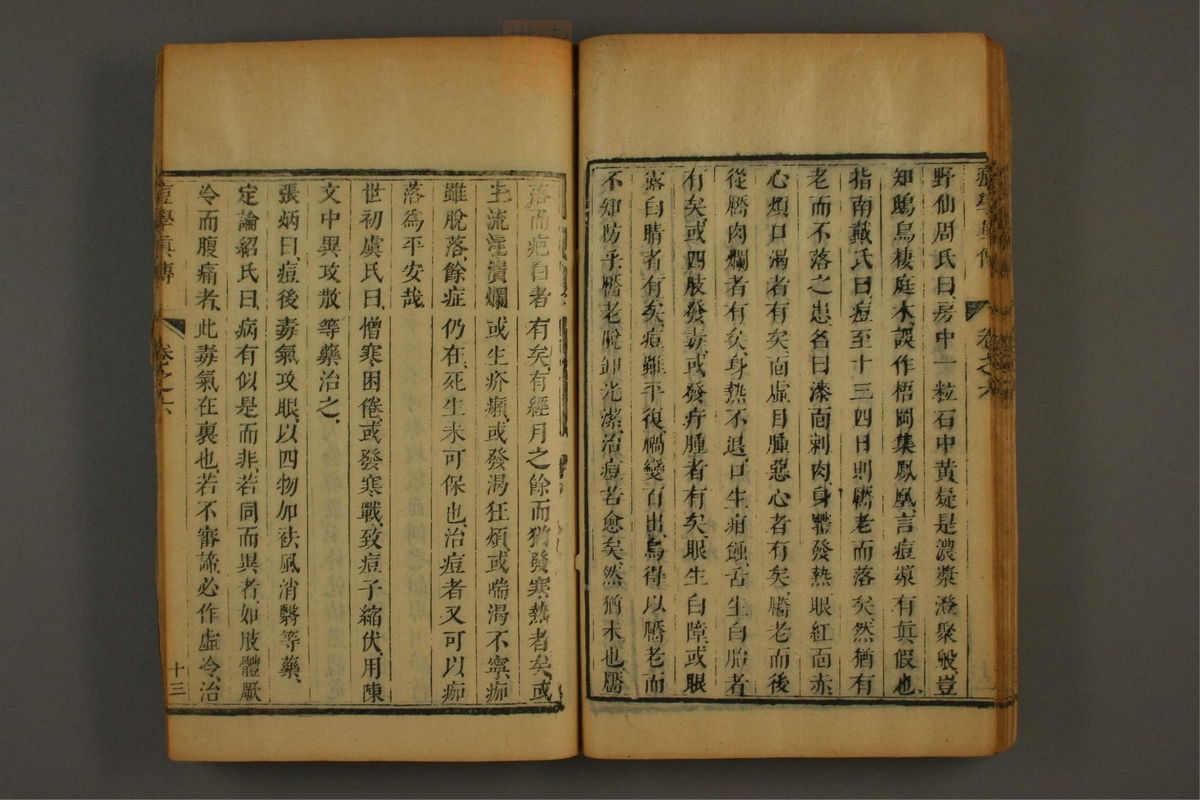 痘學真傳 卷之六
野仙周氏曰房中一粒石中黃疑是濃漿澄聚㲉豈
知鵾鳥棲庭木誤作梧岡集鳳凰言痘漿有真假也
指南戴氏曰痘至十三四日則靨老而落矣然猶有
老而不落之患名曰漆面剌肉身體發熱眼紅面赤
心煩口渴者有矣面虛目腫惡心者有矣靨老而後
從靨肉爛者有矣身熱不退口生疳蝕舌生白胎者
有矣或四肢發毒或發疔腫者有矣眼生白障或眼
露白睛者有矣痘雖平復禍變百出烏得以靨老而
不知防乎靨老脫卸光潔治痘若愈矣然猶未也靨
落而疤白者有矣有經月之餘而猶發寒熱者矣或
主流淫潰爛或生疥癩或發渴狂煩或喘渴不寧痂
雖脫落餘症仍在死生未可保也治痘者又可以痂
落為平安哉
世初虞氏曰憎寒困倦或發寒戰致痘子縮伏用陳
文中異攻散等藥治之
張炳曰痘後毒氣攻眼以四物加祛風消翳等藥
定論貂氏曰病有似是而非若同而異者如肢體厥
冷而腹痛者此毒氣在裏也若不審諦必作虛冷治
痘學真傳 卷之六 十三